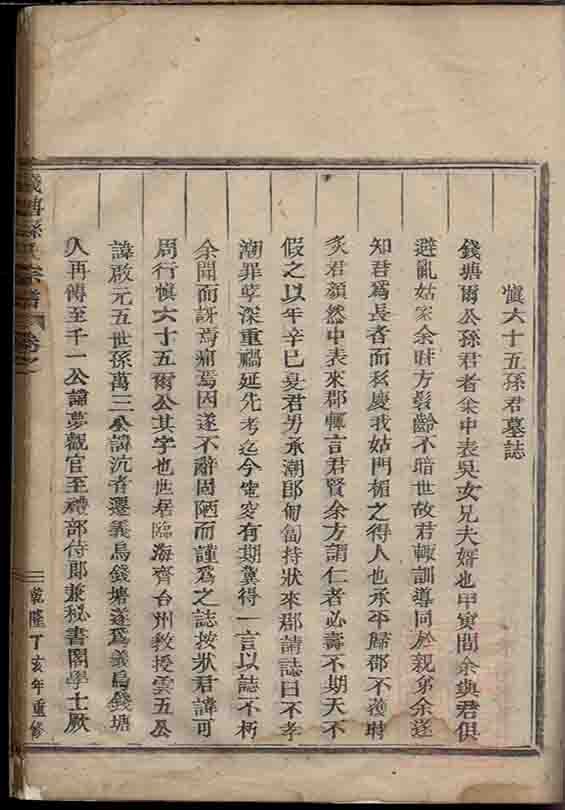 慎六十五孫君墓誌
錢塘爾公孫君者余中表吳女兄夫婿也甲寅間余與君俱
避亂姑家余時方髫齡不暗世故君輙訓導同於親弟余遂
知君為長者而私慶我姑門楣之得人也承平歸郡不獲時
炙君顏然中表來郡輙言君賢余方謂仁者必壽不期天不
假之以年辛巳夏君男承潮郎匍匐持狀來郡請誌曰不孝
潮罪孽深重禍延先考迄今窀穸有期冀得一言以誌不朽
余聞而訝焉痛焉因遂不辭固陋而謹為之誌按狀君諱可
周行慎六十五爾公其字也世居臨海齊台州教授雲五公
諱啟元五世孫萬三公諱沆者遷義烏錢塘遂為義烏錢塘
人再傳至千一公諱夢觀官至禮部侍郎兼秘書閣學士厥
錢塘孫氏宗譜 卷之
乾隆丁亥年重修